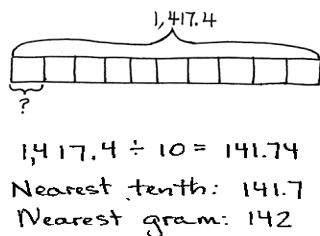 1,417.4
?
1,417.4 ÷ 10 = 141.74
Nearest tenth: 141.7
Nearest gram: 142